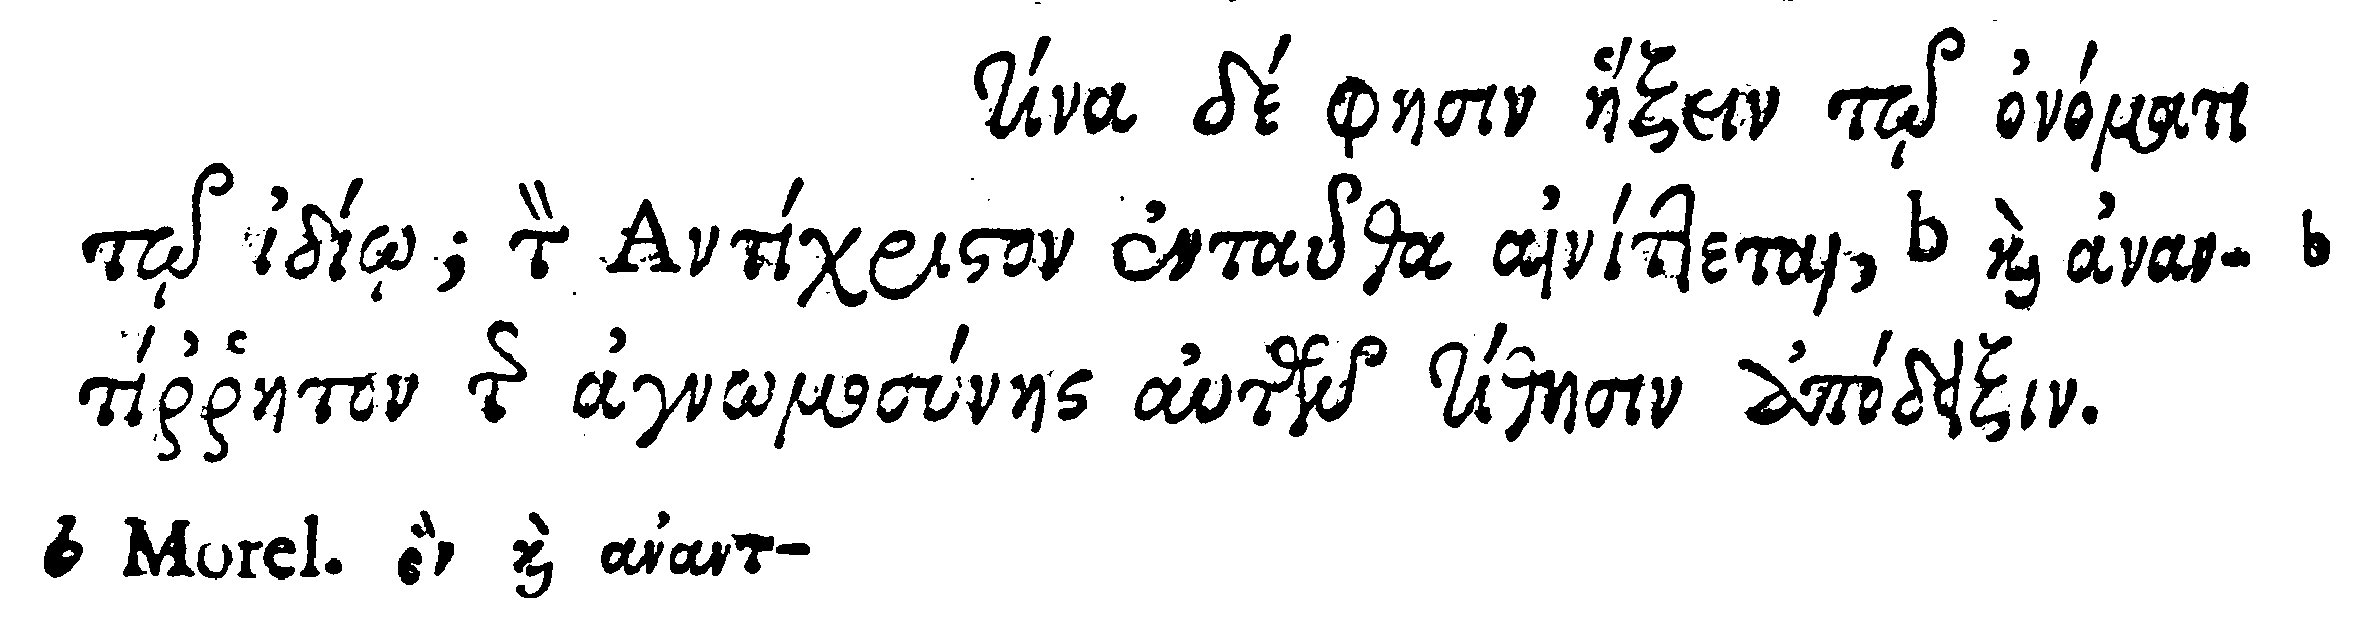 Τίνα δέ φησιν ἥξειν τῷ ὀνόματι
τῷ ἰδίῳ; τὸν Ἀντίχριστον ἐνταῦθα αἰνίττεται, b καὶ ἀναν- b
τίῤῥητον τῆς ἀγνωμοσύνης αὐτῶν τίθησιν ἀπόδειξιν.
b Morel. καὶ ἀναντ-